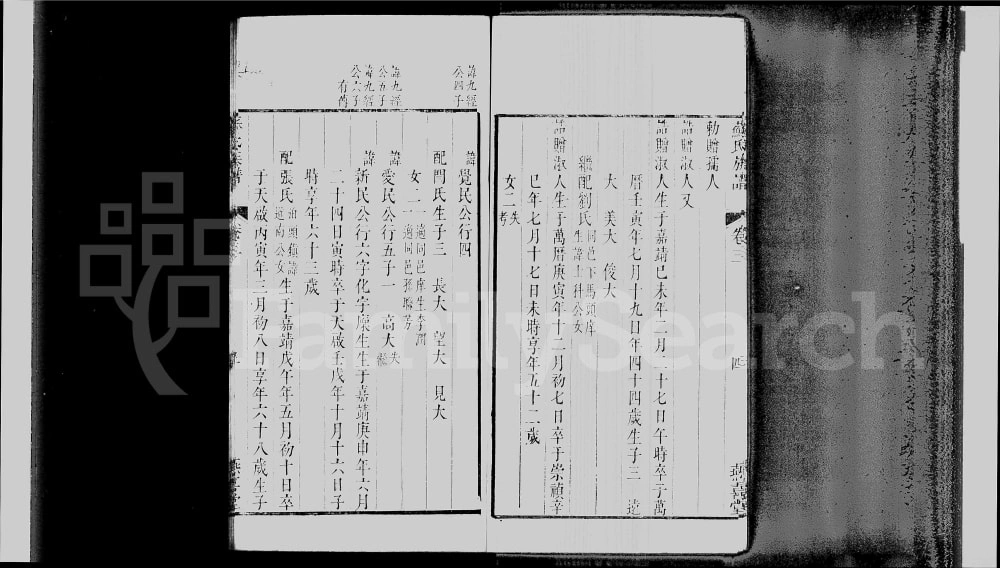 氏族譜 卷三 四 燕喜堂
勅贈孺人
誥贈淑人又
誥贈淑人生于嘉靖巳未年二月二十七日午時卒于萬
曆壬寅年七月十九日年四十四歲生子三 達
大 美大 俊大
繼配劉氏同邑下馬頭庠
生諱上科公女
誥贈淑人生于萬曆庚寅年十二月初七日卒于崇禎辛
巳年七月十七日未時享年五十二歲
女二失考
諱九經
公四子
諱覺民公行四
配門氏生子三 長大 望大 見大
女二一適同邑庠生李潤
一適同邑孫聯芳
諱九經
公五子
諱愛民公行五子一 高大失
諱九經
公六子
有芮
諱新民公行六字化字廩生生于嘉靖庚申年六月
二十四日寅時卒于天啟壬戌年十月十六日子
時享年六十三歲
配張氏油頭鎮諱
運南公女生于嘉靖戊午年五月初十日卒
于天啟丙寅年三月初八日享年六十八歲生子
氏族譜
FamilySearch